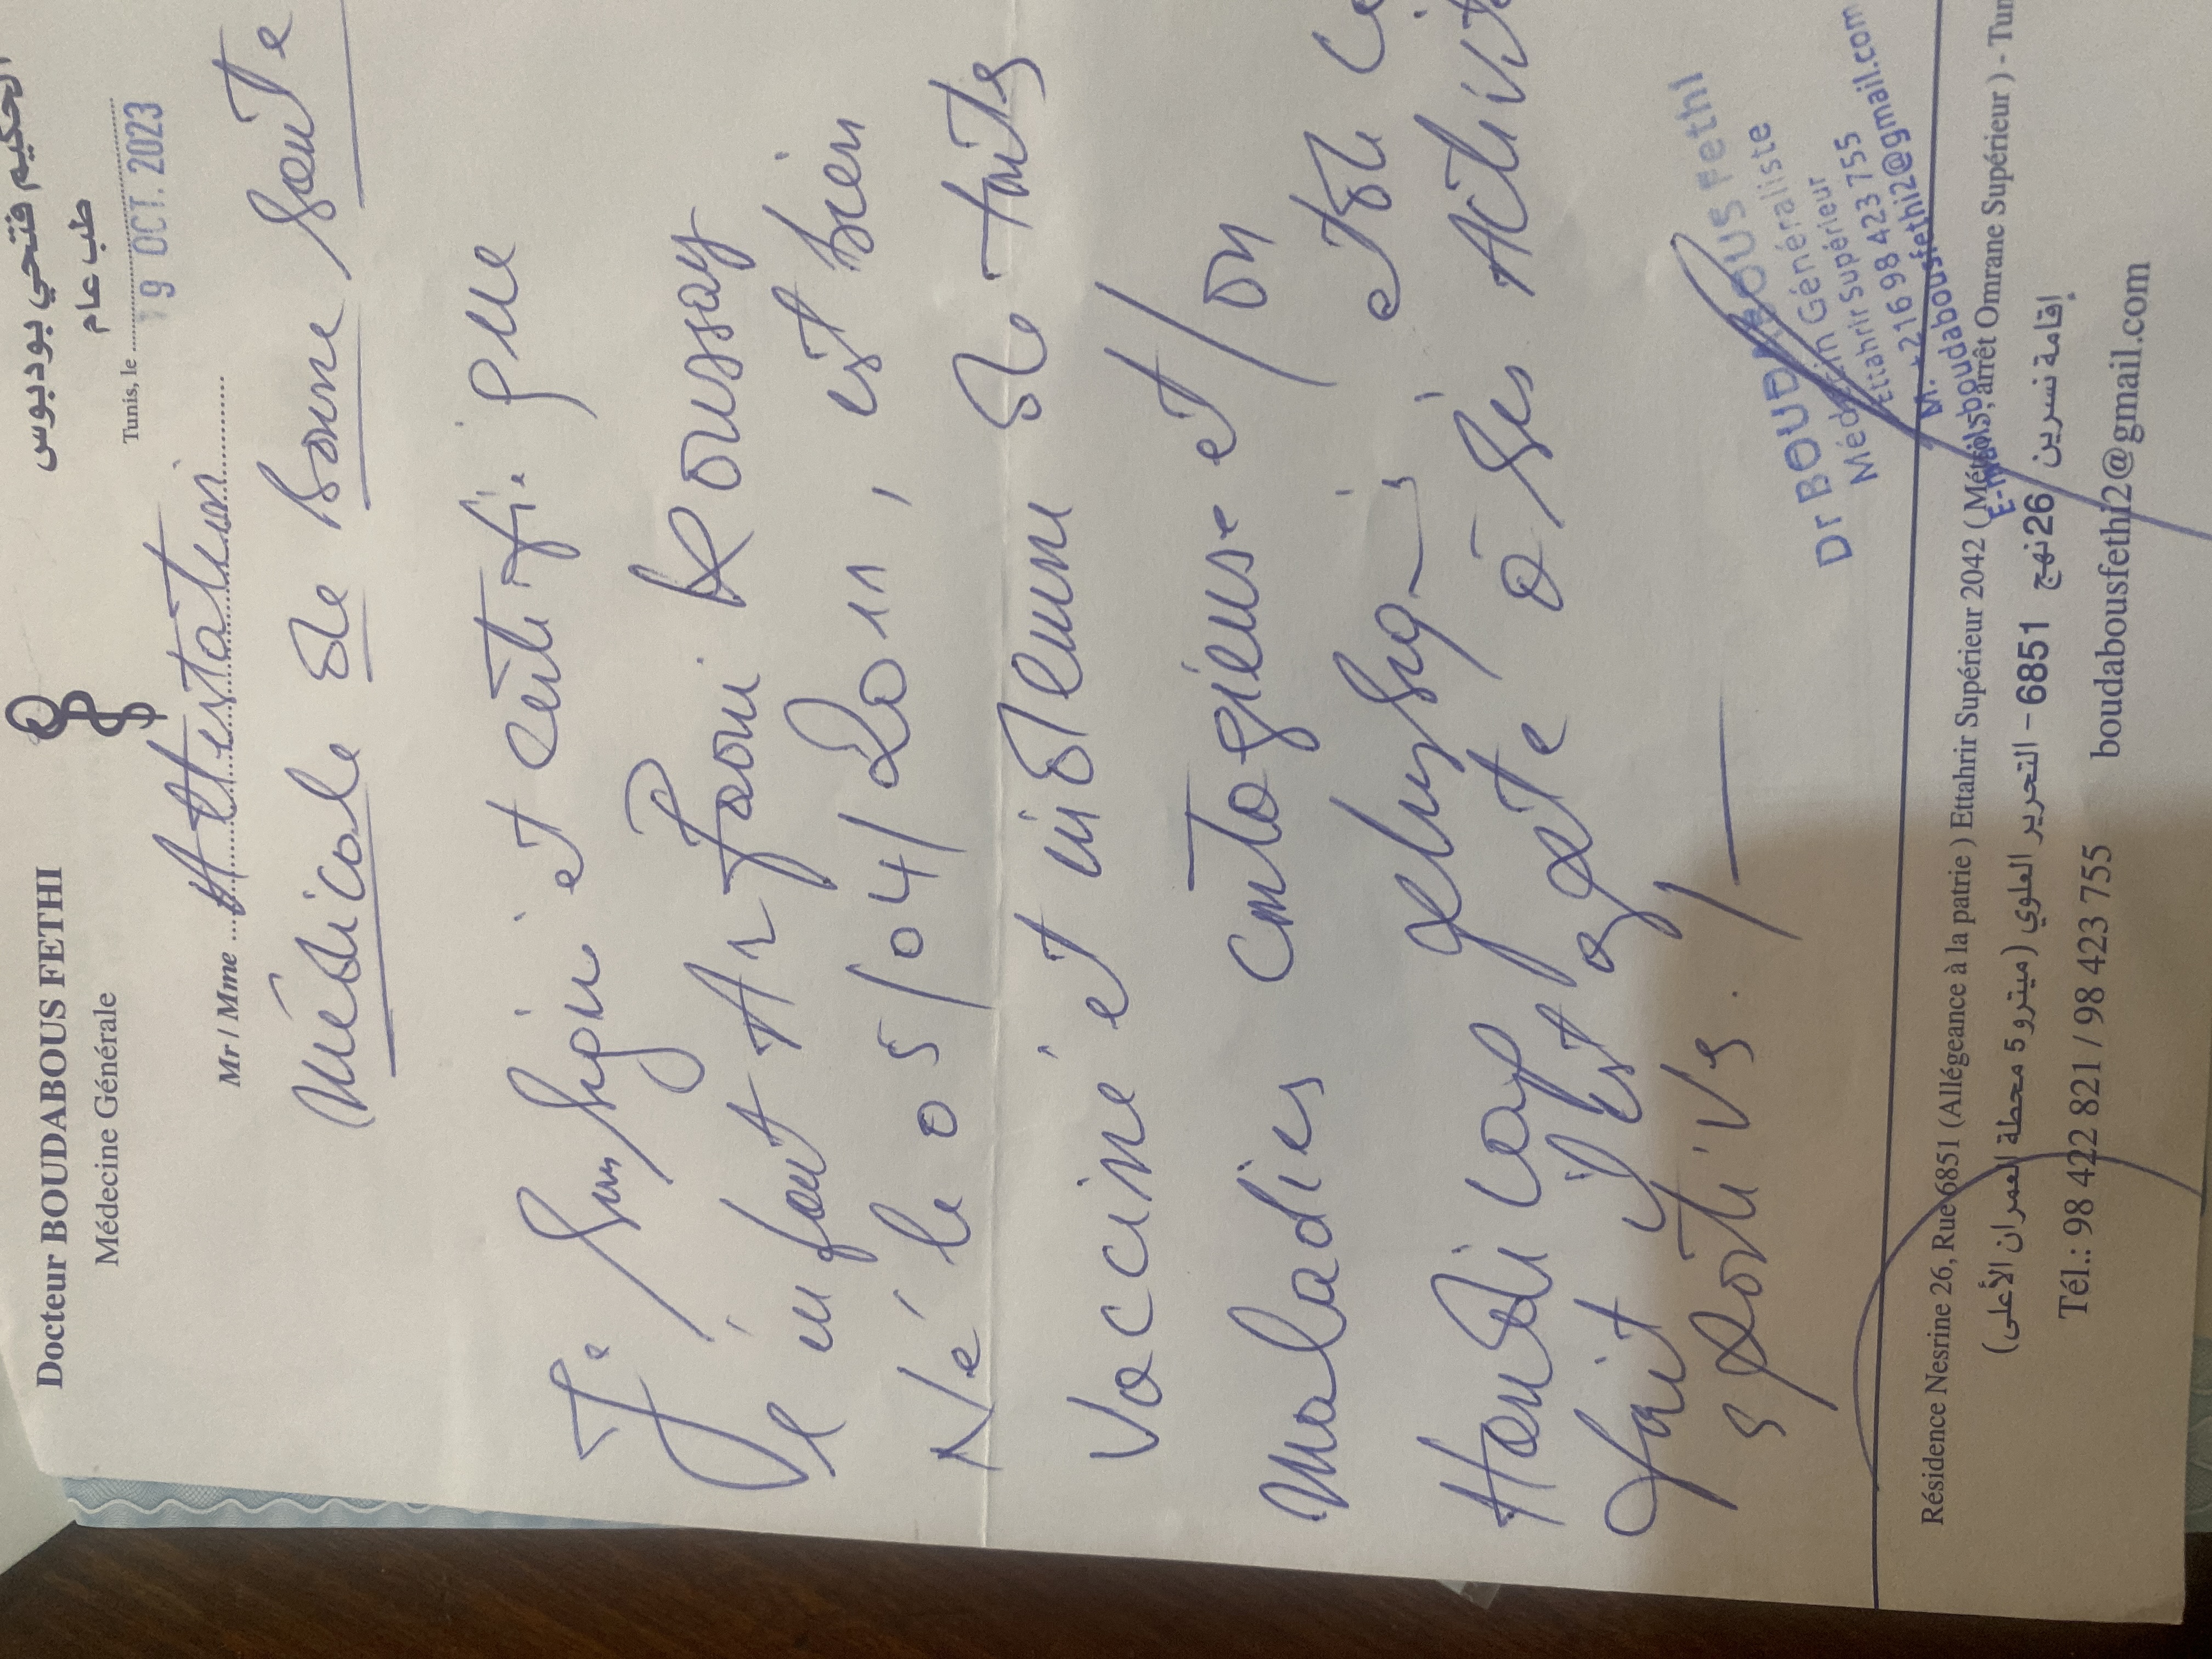 Docteur BOUDABOUS FETHI
Médecine Générale
الحكيم فتحي بودبوس
طب عام
Tunis, le
9 OCT. 2023
Mr / Mme Attestation
Médicale de bonne Santé
Je soussigné et certifie que
l'enfant Arfaoui Koussay
Né le 05/04/2011, est bien
Vacciné et indemne de touts
maladies contagieuse et/ou
Handicap et de
fait il est apte à ses Activit
sportivs.
Dr BOUDABOUS Fethi
Médecin Généraliste
Ettahrir Supérieur
M. +216 98 423 755
E-Mail: boudabousfethi2@gmail.com
Résidence Nesrine 26, Rue 6851 (Allégeance à la patrie ) Ettahrir Supérieur 2042 ( Métro 5, arrêt Omrane Supérieur ) - Tun
إقامة نسرين 26 نهج 6851 – التحرير العلوي (ميترو 5 محطة العمران الأعلى)
Tél.: 98 422 821 / 98 423 755
boudabousfethi2@gmail.com